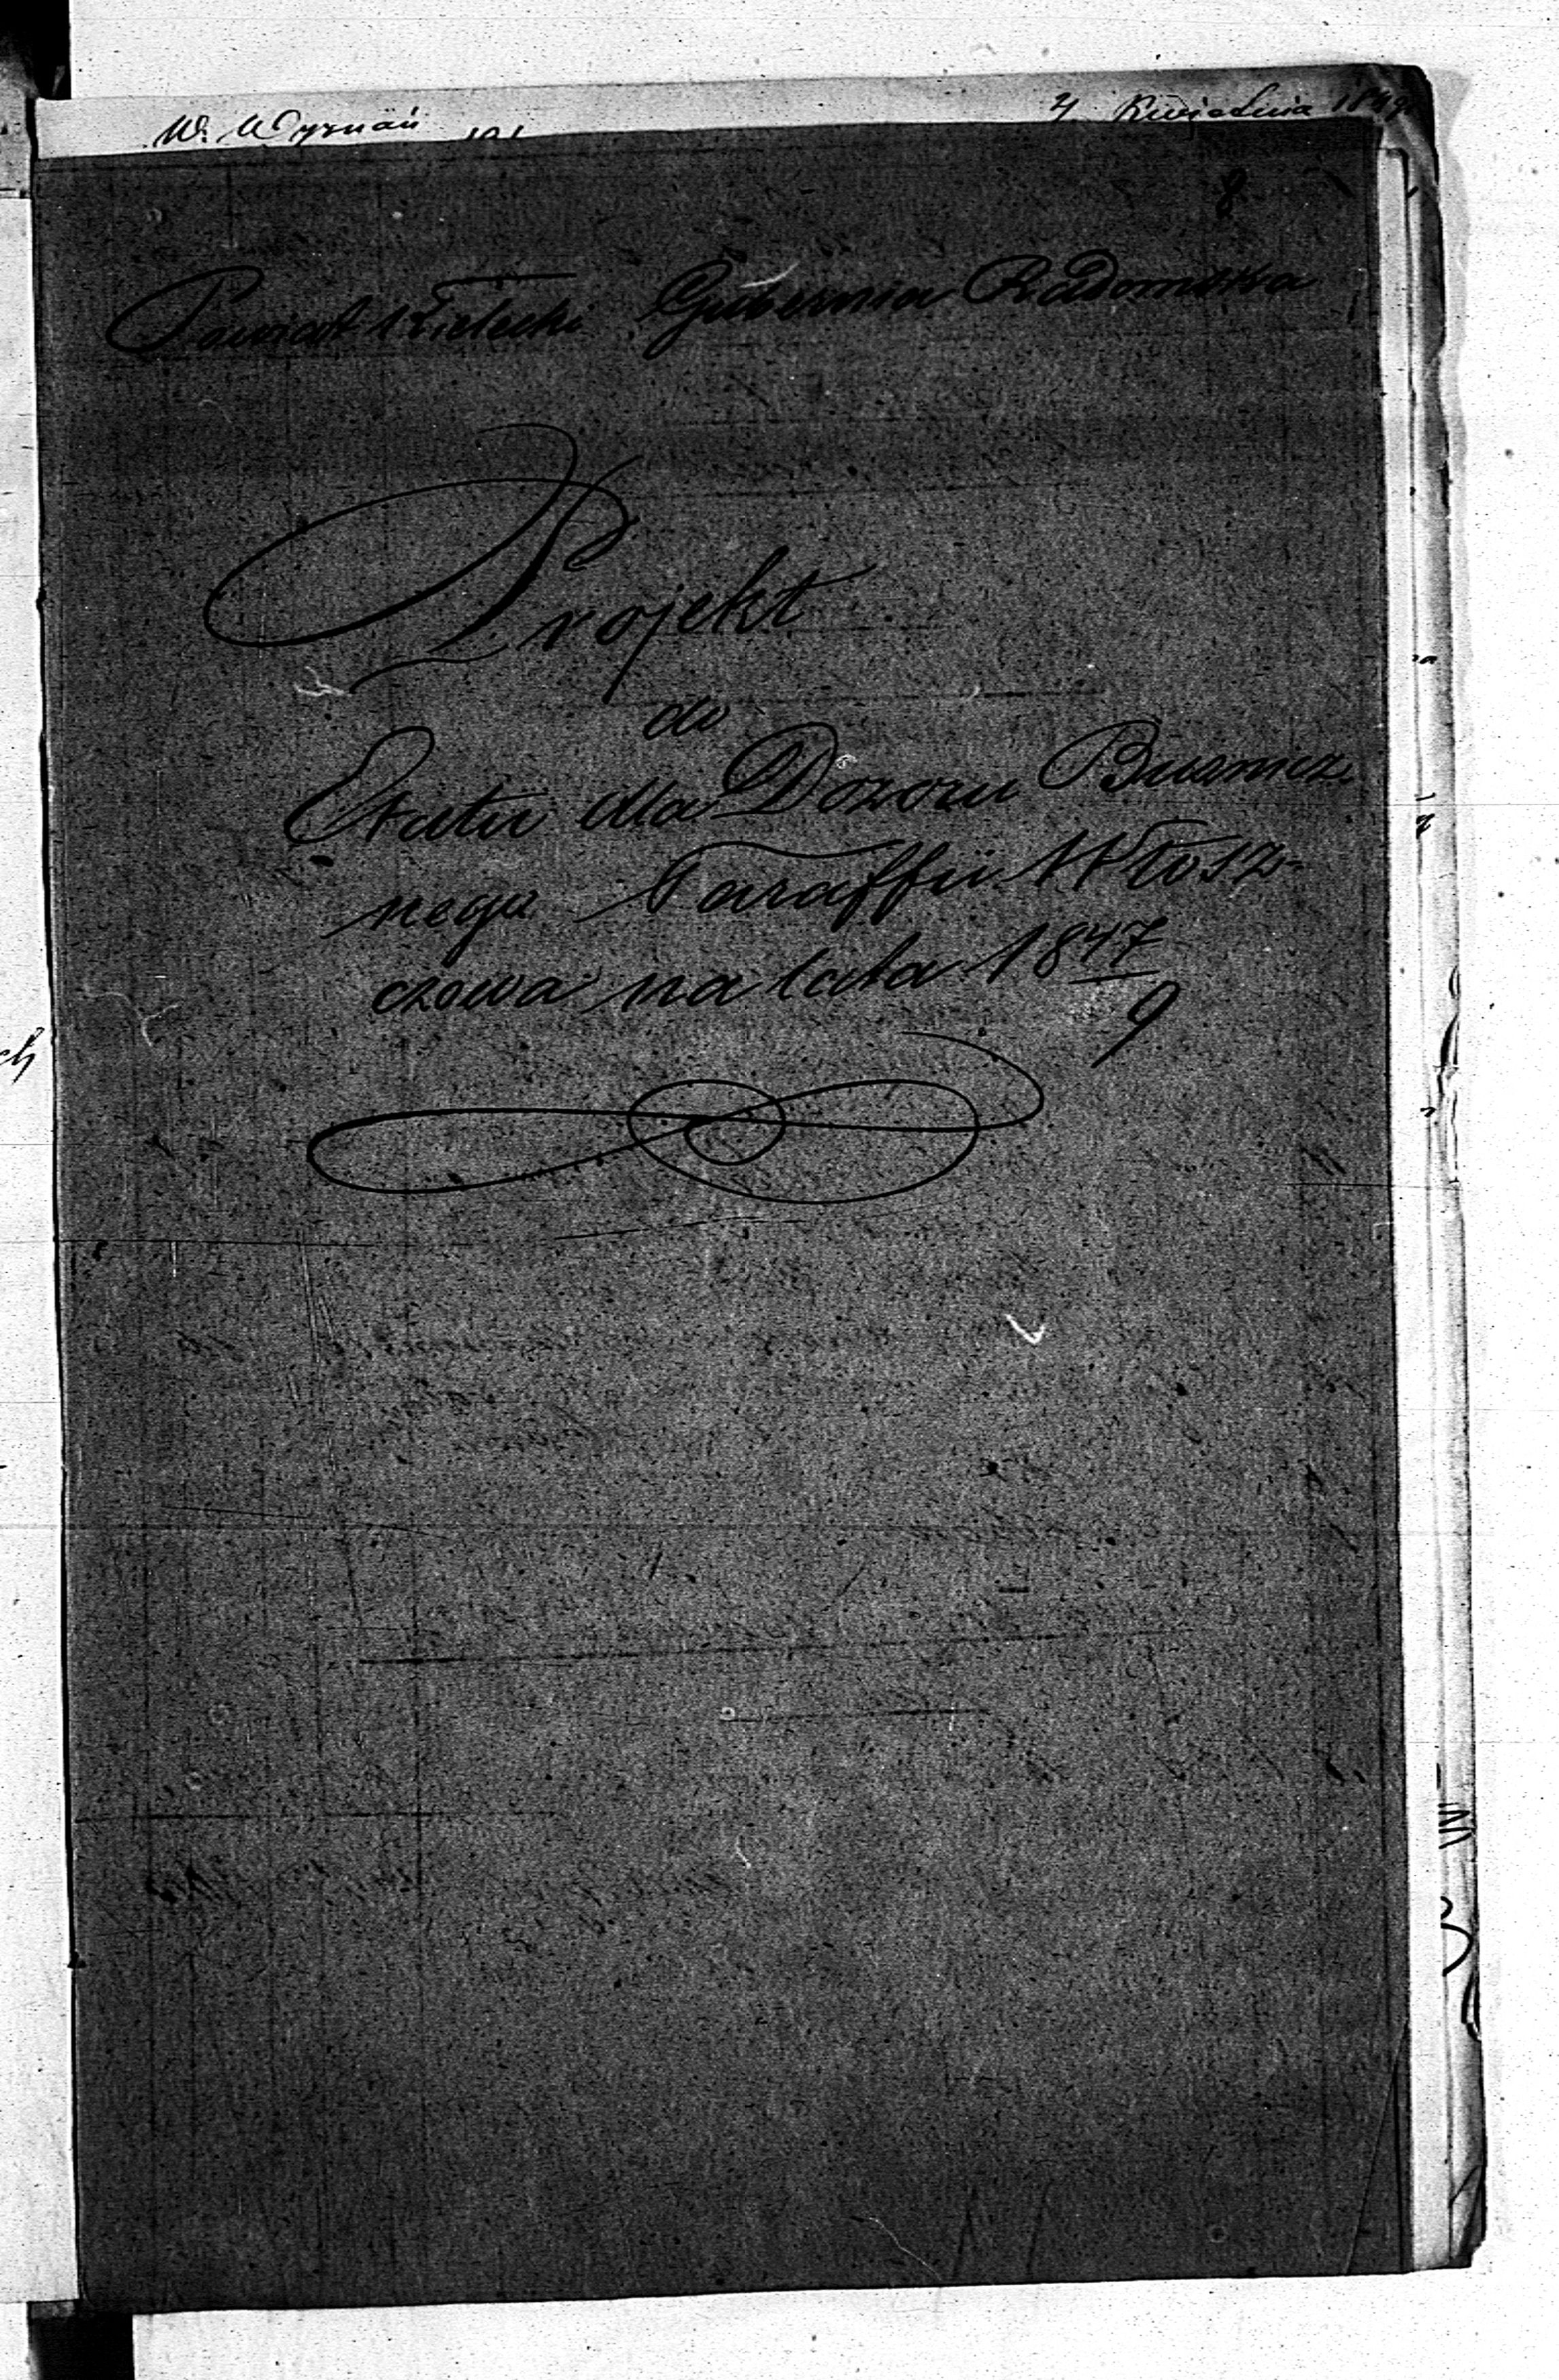 W. Wyznań
4 Kwietnia 1849
8
Powiat Kielecki Gubernia Radomska
Projekt
do
Etatu dla Dozoru Bużnicz-
nego Paraffii Włosz-
czowa na lata 1847/9